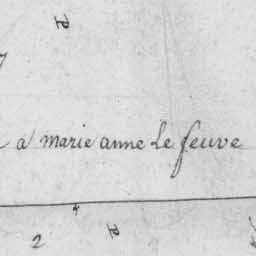 P
a marie anne Le feuve
2 P